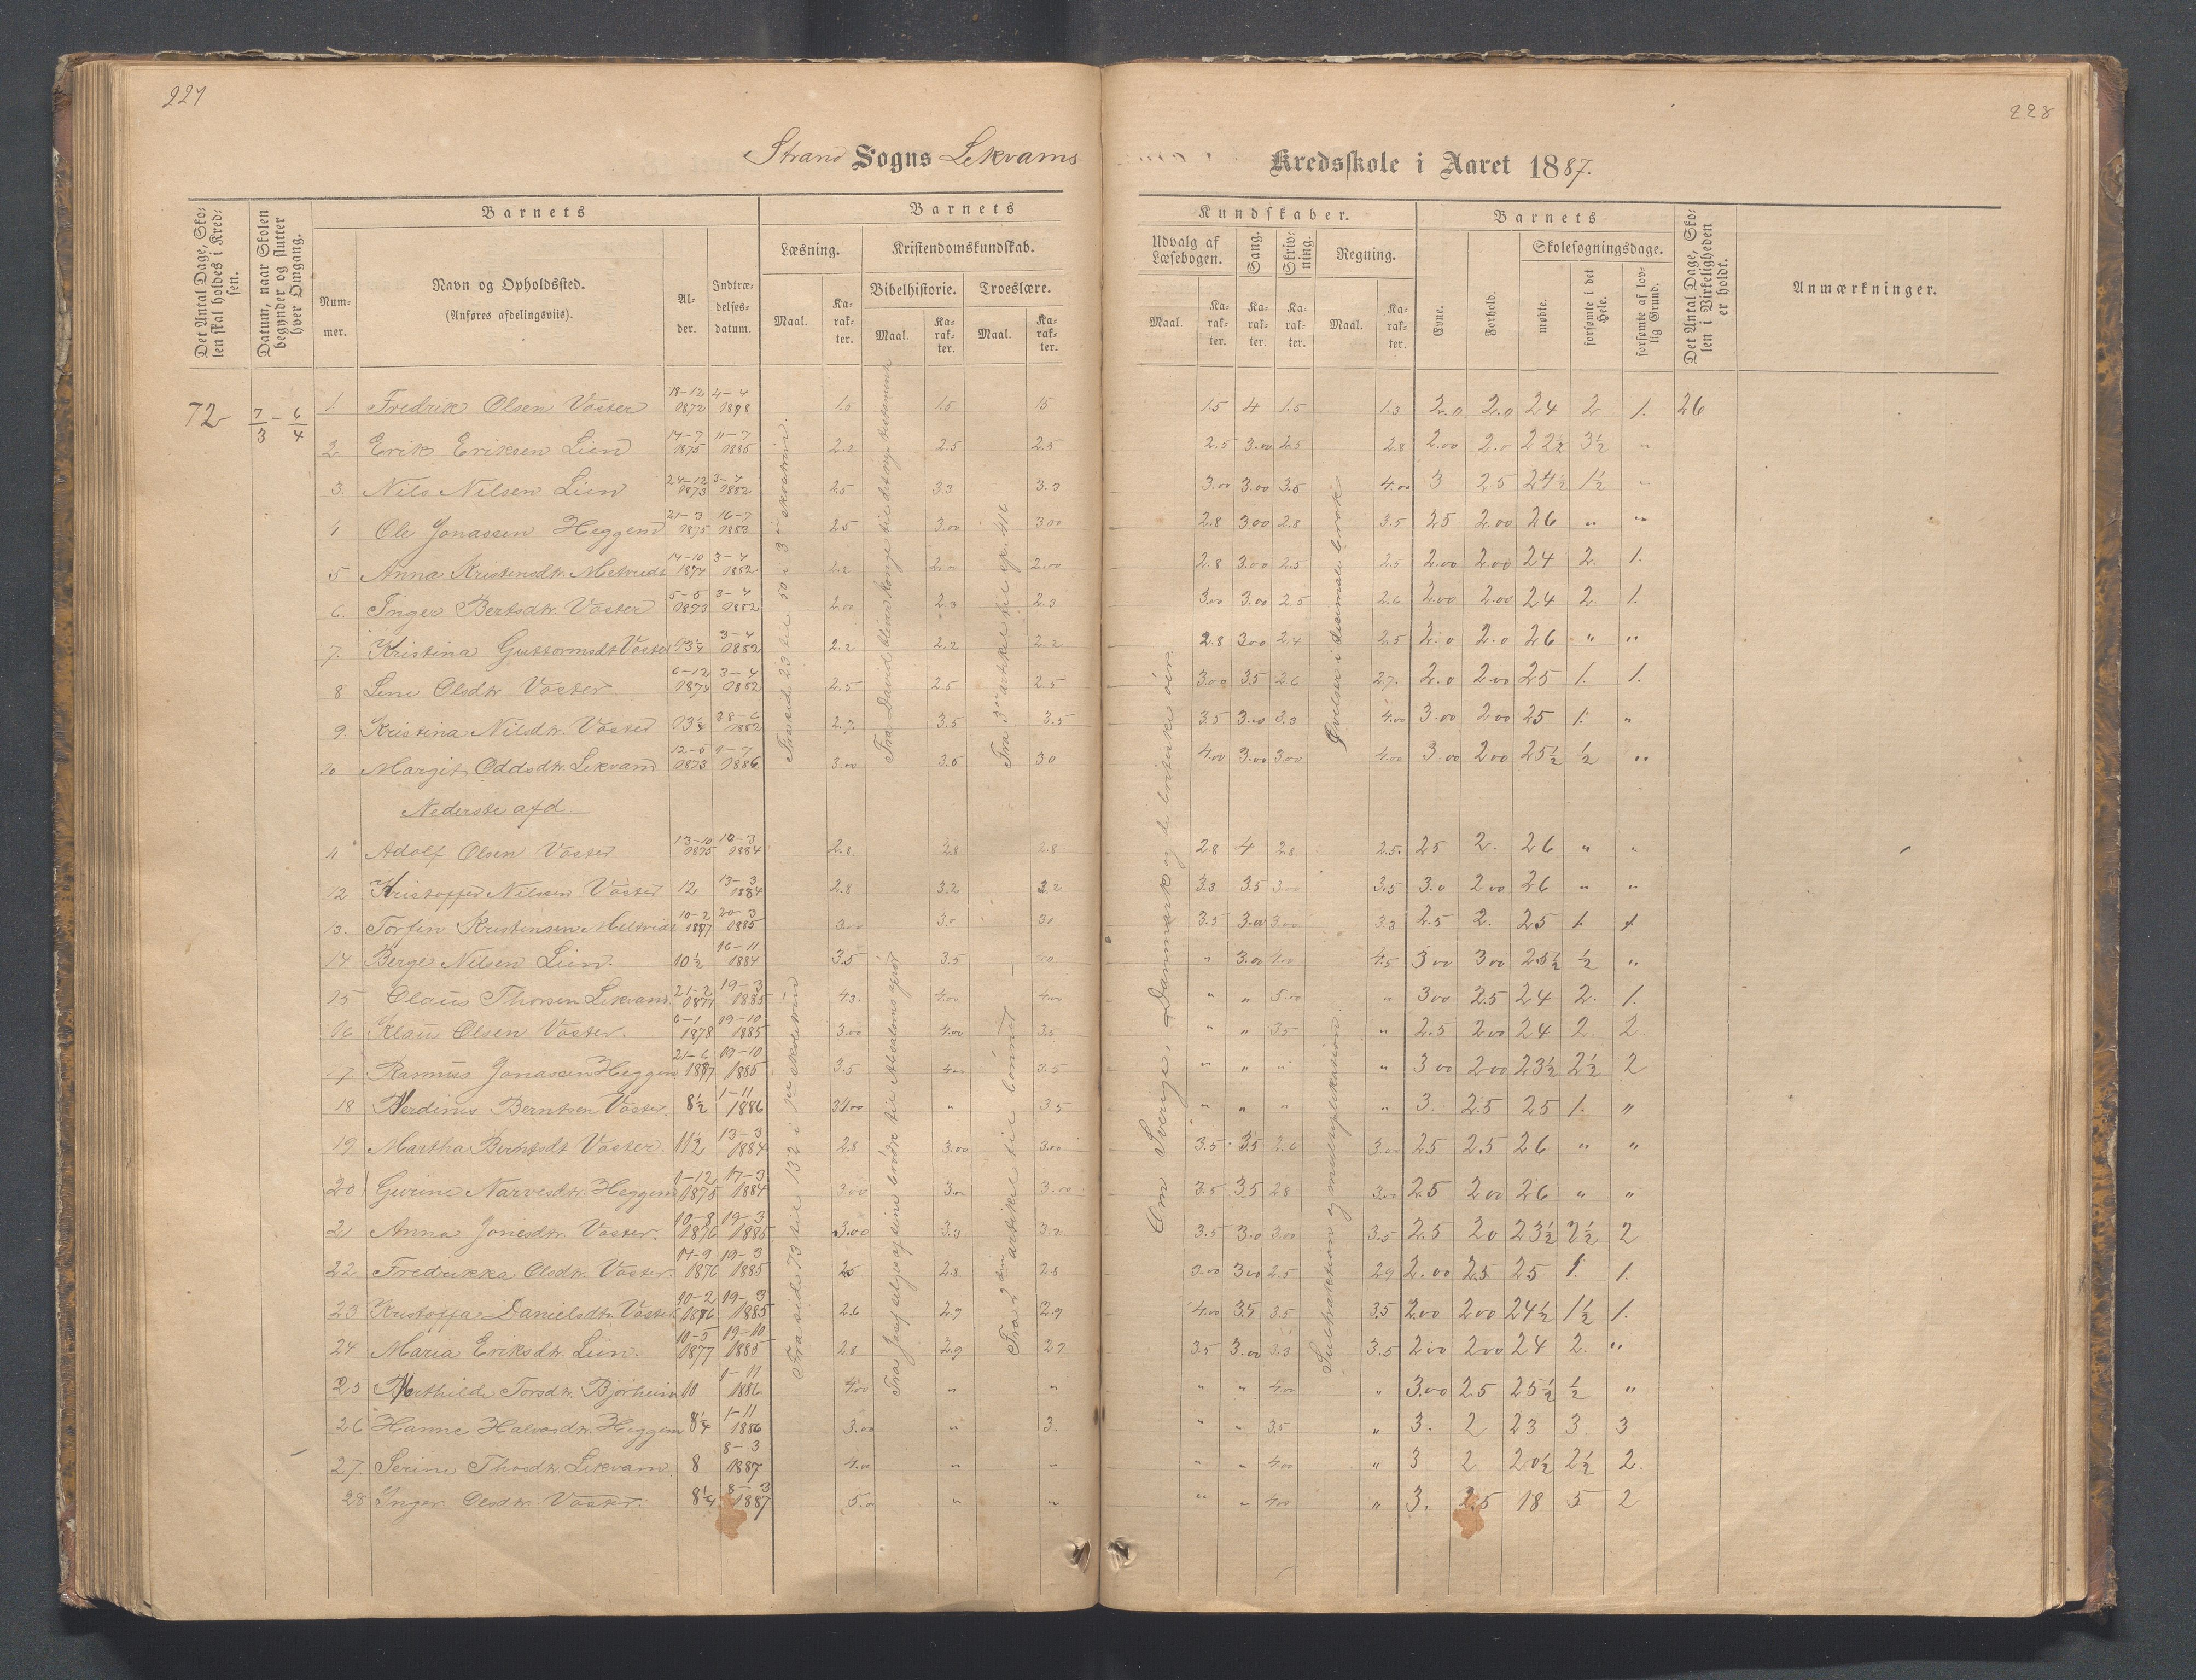 227
228
Strand Sogns Lekvams Kredsskole i Aaret 1887.
Det Antal Dage, Skolen skal holdes i Kredsen.
Datum, naar Skolen begynder og slutter hver Omgang.
Barnets
Nummer.
Navn og Opholdssted.
(Anføres afdelingsviis).
Alder.
Indtrædelsesdatum.
Barnets Kundskaber.
Læsning.
Kristendomskundskab.
Bibelhistorie.
Troeslære.
Udvalg af Læsebogen.
Sang.
Skrivning.
Regning.
Maal.
Karakter.
Barnets
Evne.
Forhold.
Skolesøgningsdage.
mødte.
forsømte i det Hele.
forsømte af lovlig Grund.
Det Antal Dage, Skolen i Virkeligheden er holdt.
Anmærkninger.
72 7/3 - 6/4 1. Fredrik Olsen Vaster 18-12 1872 4-4 1.5 1.5 15 1.5 4 1.5 1.3 2.0 2.0 24 2 1. 26
2 Erik Eriksen Lien 14-7 1875 11-7 1885 2.2 2.5 2.5 2.5 3.00 2.5 2.8 2.00 2.0 22½ 3½ "
3. Nils Nilsen Lien 24-12 1873 3-4 1882 2.5 3.3 3.3 3.00 3.00 3.5 4.00 3 25 24½ 1½ "
4 Ole Jonassen Heggem 21-3 1875 16-7 1883 2.5 3.00 300 2.8 300 2.8 3.5 25 2.00 26 " "
5 Anna Kristensdtr. 14-10 1874 3-4 1882 2.2 2.00 2.00 2.8 3.00 2.5 2.5 2.00 2.00 24 2. 1.
6. Inger Berntsdtr. Vaster 5-5 1873 3-4 1882 2.00 2.3 2.3 3.00 3.00 2.5 2.6 2.00 2.00 24 2. 1.
7. Kristina Guttormsdt Vaster 13¼ 3-4 1882 2.2 2.2 2.2 2.8 300 2.4 2.5 2.0 2.0 26 " "
8 Lene Olsdtr. Vaster 6-12 1874 3-4 1882 2.5 2.5 2.5 3.00 3.5 2.6 2.7. 2.0 2.00 25 1. 1.
9. Kristina Nilsdtr. Vaster 13¼ 28-6 1882 2.7. 3.5 3.5 3.5 3.00 3.3 4.00 3.00 200 25 1. "
10 Margit Oddsdtr. Lekvam 12-5 1873 9-7 1886 3.00 3.5 30 4.00 3.00 3.00 4.00 3.00 200 25½ ½ "
Nederste afd
11 Adolf Olsen Vaster 13-10 1875 1884 2.8. 2.8 2.8 2.8 4 2.8 2.5. 25 2. 26 " "
12 Kristoffer Nilsen Vaster 12 13-3 1884 2.8 3.2 3.2 3.3 3.5 3.00 3.5 3.0 200 26 " "
13. Torfin Kristensen 10-2 1877 20-3 1885 3.00 3.0 30 3.5 3.00 3.00 3.3 2.5 2. 25 1. 1
14 Berge Nilsen Lien. 10½ 16-11 1884 3.5 3.5 " 3.00 4.00 4.5 300 300 25½ ½ "
15 Claus Thorsen Lekvam. 21-2 1877 19-3 1885 4.3. 4.00 4.00 " " 5.00 " 300 2.5 24 2. 1.
16 Klaus Olsen Vaster. 6-1 1878 19-10 1885 3.00 4.00 3.5 " " 3.5 " 2.5 200 24 2. 2
17. Rasmus Jonassen Heggem 21-6 1877 19-10 1885 3.5 3.5 " " " " 300 200 23½ 2½ 2
18 Berntsen Vaster. 8½ 1-11 1886 " 3.5 " " " " 3. 2.5 25 1. "
19 Martha Berntsdt Vaster. 11½ 13-3 1884 2.8 3.00 3.00 3.5 3.5 2.6 3.00 25 2.5 26 " "
20 Gurine Narvesdtr. Heggem 1-12 1875 17-3 1884 300 3.00 3.00 3.5 3.5 2.8 3.00 2.5 200 26 " "
21 Anna Jonesdtr. Vaster. 10-8 1876 19-3 1885 3.00 3.3 3.2 3.5 3.0 3.00 3.5 2.5 20 23½ 2½ 2
22 Fredrikka Olsdtr. Vaster. 14-9 1876 19-3 1885 25 2.8. 2.8 3.00 300 2.5 2.9 2.00 25 25 1. 1.
23 Kristoffa Danielsdtr. Vaster 10-2 1876 19-3 1885 2.6 2.9 2.9 4.00 3.5 3.5 3.5 200 200 24½ 1½ 1.
24 Maria Eriksdtr. Lien. 10-5 1877 19-10 1885 2.8 2.9 2.9 3.5 3.00 3.3 3.5 200 200 24 2. "
25 Torsdtr. Bjørheim 10 1-11 1886 4.00 " " " " 4.00 " 3.00 25 25½ ½ "
26 Hanne Halvordtr. Heggem 8¼ 1-11 1886 3.00 " 3. " " 3.5 " 3. 2 23 3 3
27. Serine Thosdtr. Lekvam 8 8-3 1887 4.00 " " " " 4.00 " 3 2 20½ 2½ 2.
28 Inger Olsdtr. Vaster. 8¼ 8-3 1887 5.0 " " " " 4.00 " 3. 2.5 18 5 2
Fra side 23 til 50 i 3die skoletrin.
Fra David bliver konge til det nye testamente
Fra 3die artikkel til sp. 416
Fra side 73 til 132 i 1ste skoletrin
Fra Josef selges af sine brødre til Absalons oprør
Fra 2den artikel til bønnen
Om Sverige, Danmark og de britiske øer.
Øvelser i desimalbrøk
Subtraktion og multiplikation.